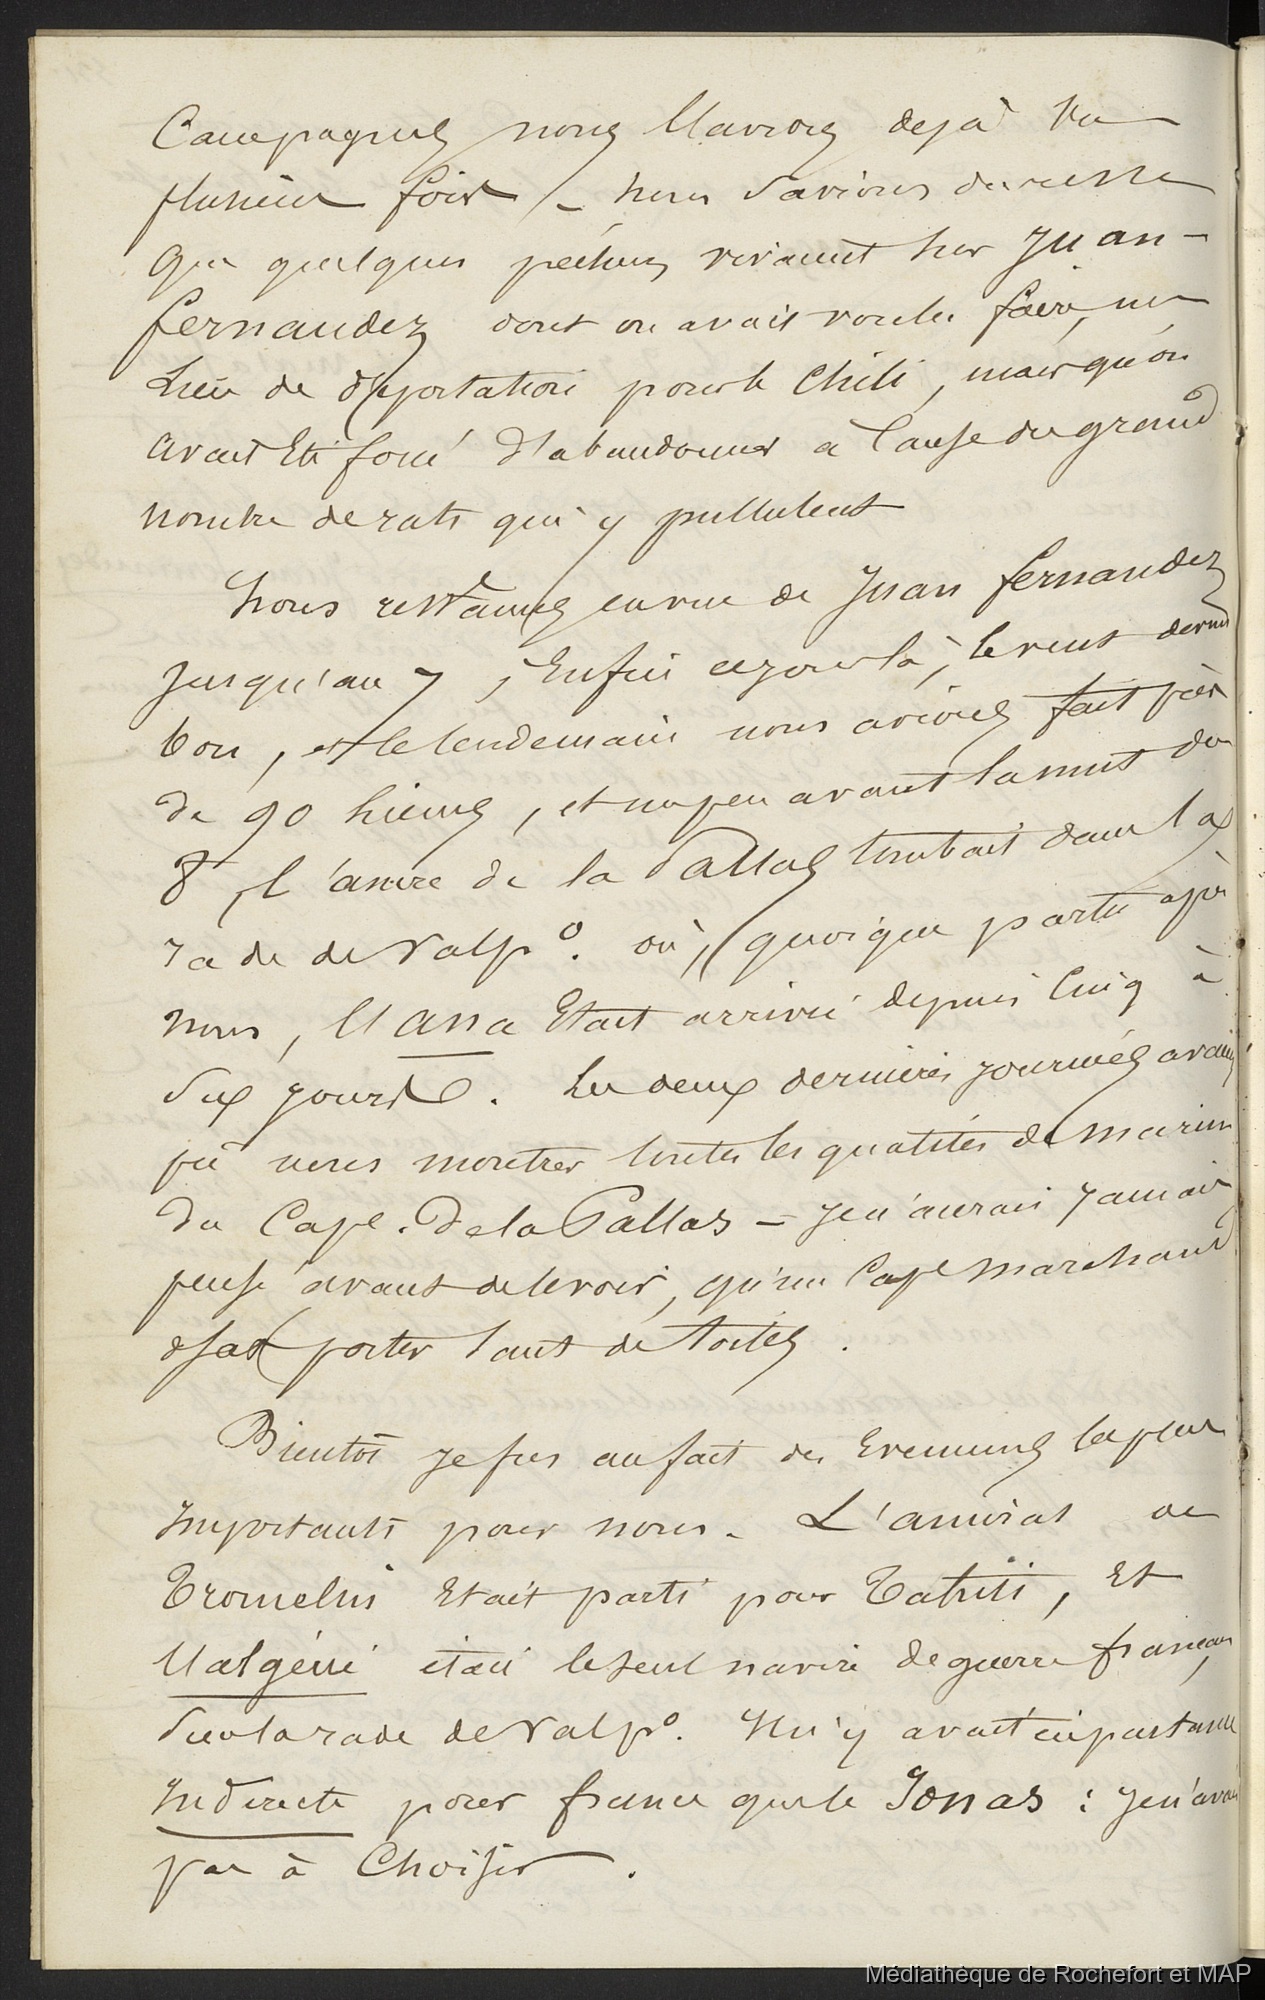 Campagnes nous l'avions dejà vu
plusieurs fois - nous savions du reste
que quelques pêcheurs vivaient sur Juan-
fernandez dont on avait voulu faire un
lieu de déportation pour le Chili, mais qu'on
avait été forcé d'abandonner à cause du grand
nombre de rats qui y pullulent
Nous restâmes en vue de Juan fernandez
jusqu'au 7, Enfin ce jour là, le vent devint
bon, et le lendemain nous avions fait près
de 90 lieues, et un peu avant la nuit du
8, l'ancre de la Pallas tombait dans la
rade de Valpo. où, quoique partie après
nous, l'Anna Etait arrivée depuis Cinq à
Six jours. Les deux dernières journées avaient
pu nous montrer toutes les qualités de marin
du Cape. de la Pallas - je n'aurais jamais
pensé avant de le voir, qu'un Cape marchand
osat porter tant de toiles.
Bientôt je fus au fait des Evenemens les plus
Importants pour nous. L'amiral de
Tromelin Etait parti pour Tahiti, Et
l'algérie était le seul navire de guerre français
Sur la rade de Valpo. Il n'y avait en partance
Indirecte pour france que le Jonas : je n'avais
pas à Choisir.
Médiathèque de Rochefort et MAP